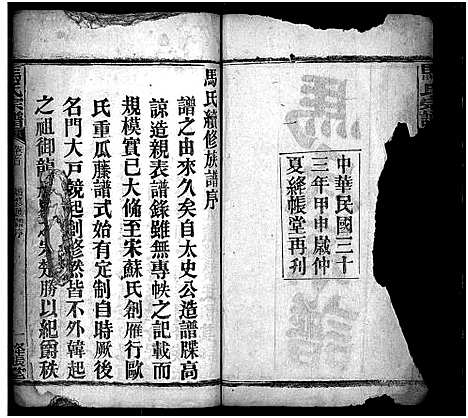 馬氏宗譜
中華民國三十
三年甲申歲仲
夏絳帳堂再刊
馬氏續修族譜序
譜之由來久矣自太史公造譜牒高
諒造親表譜錄雖無專帙之記載而
規模實已大備至宋蘇氏創雁行歐
氏重瓜藤譜式始有定制自時厥後
名門大戶競起創修然皆不外韓起
之祖御龍 勝以紀爵秩